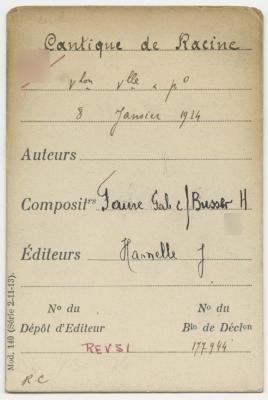 Cantique de Racine
vlon vlle & po
8 Janvier 1924
Auteurs
Composit.rs Faure Gab c/ Busser H
Éditeurs Hamelle J
No du No du
Dépôt d'Editeur Bin de Déclon
REVSI 177944
Mod. 140 (Série 2-11-13).
R C